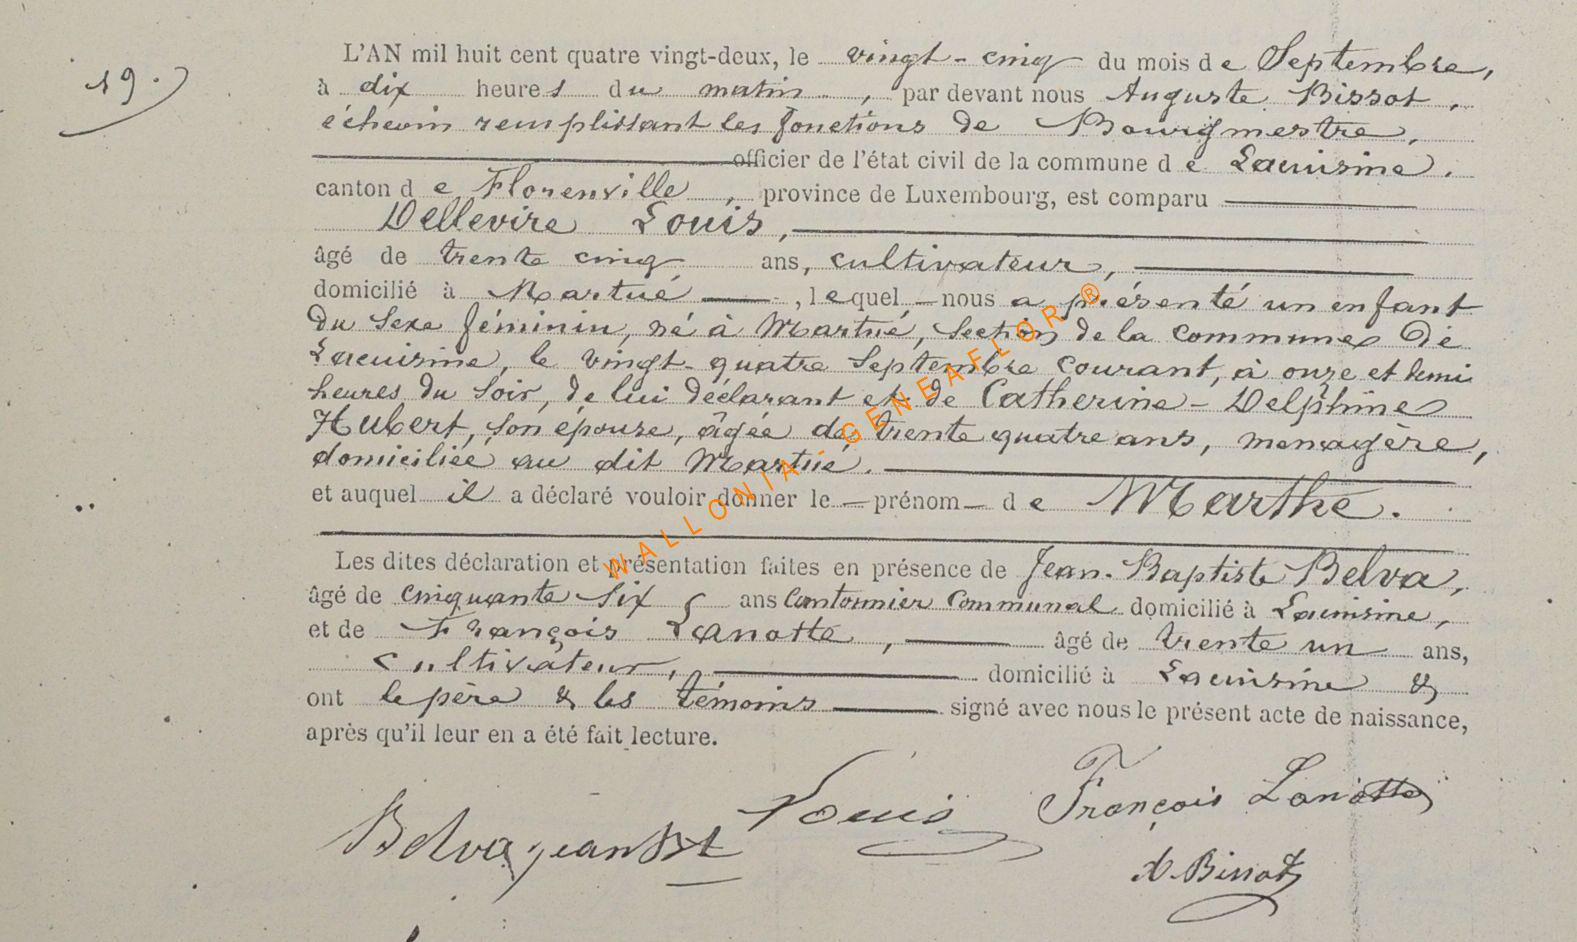 19.
L'AN mil huit cent quatre vingt-deux, le vingt-cinq du mois de Septembre,
à dix heures du matin, par devant nous Auguste Bissot,
échevin remplissant les fonctions de Bourgmestre,
officier de l'état civil de la commune de Lacuisine.
canton de Florenville, province de Luxembourg, est comparu
Dellevire Louis,
âgé de trente cinq ans, cultivateur,
domicilié à Martué, lequel nous a présenté un enfant
du sexe féminin, né à Martué, section de la commune de
Lacuisine, le vingt-quatre Septembre courant, à onze et demi
heures du soir, de lui déclarant et de Catherine-Delphine
Hubert, son épouse, âgée de trente quatre ans, menagère,
domiciliée au dit Martué.
et auquel il a déclaré vouloir donner le prénom de Marthe.
Les dites déclaration et présentation faites en présence de Jean-Baptiste Belva,
âgé de cinquante six ans Cantonnier Communal domicilié à Lacuisine,
et de François Lanotte, âgé de trente un ans,
cultivateur, domicilié à Lacuisine &
ont le père & les témoins signé avec nous le présent acte de naissance,
après qu'il leur en a été fait lecture.
WALLONIA - GENEAFLOR ®
Belva jean Bt Louis François Lanotte
A. Bissot